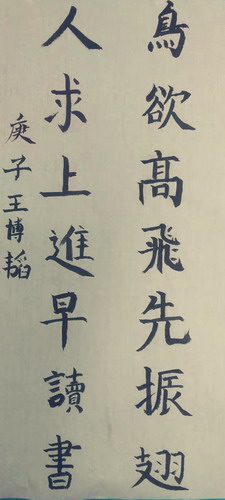 鳥欲髙飛先振翅
人求上進早讀書
庚子王博韜